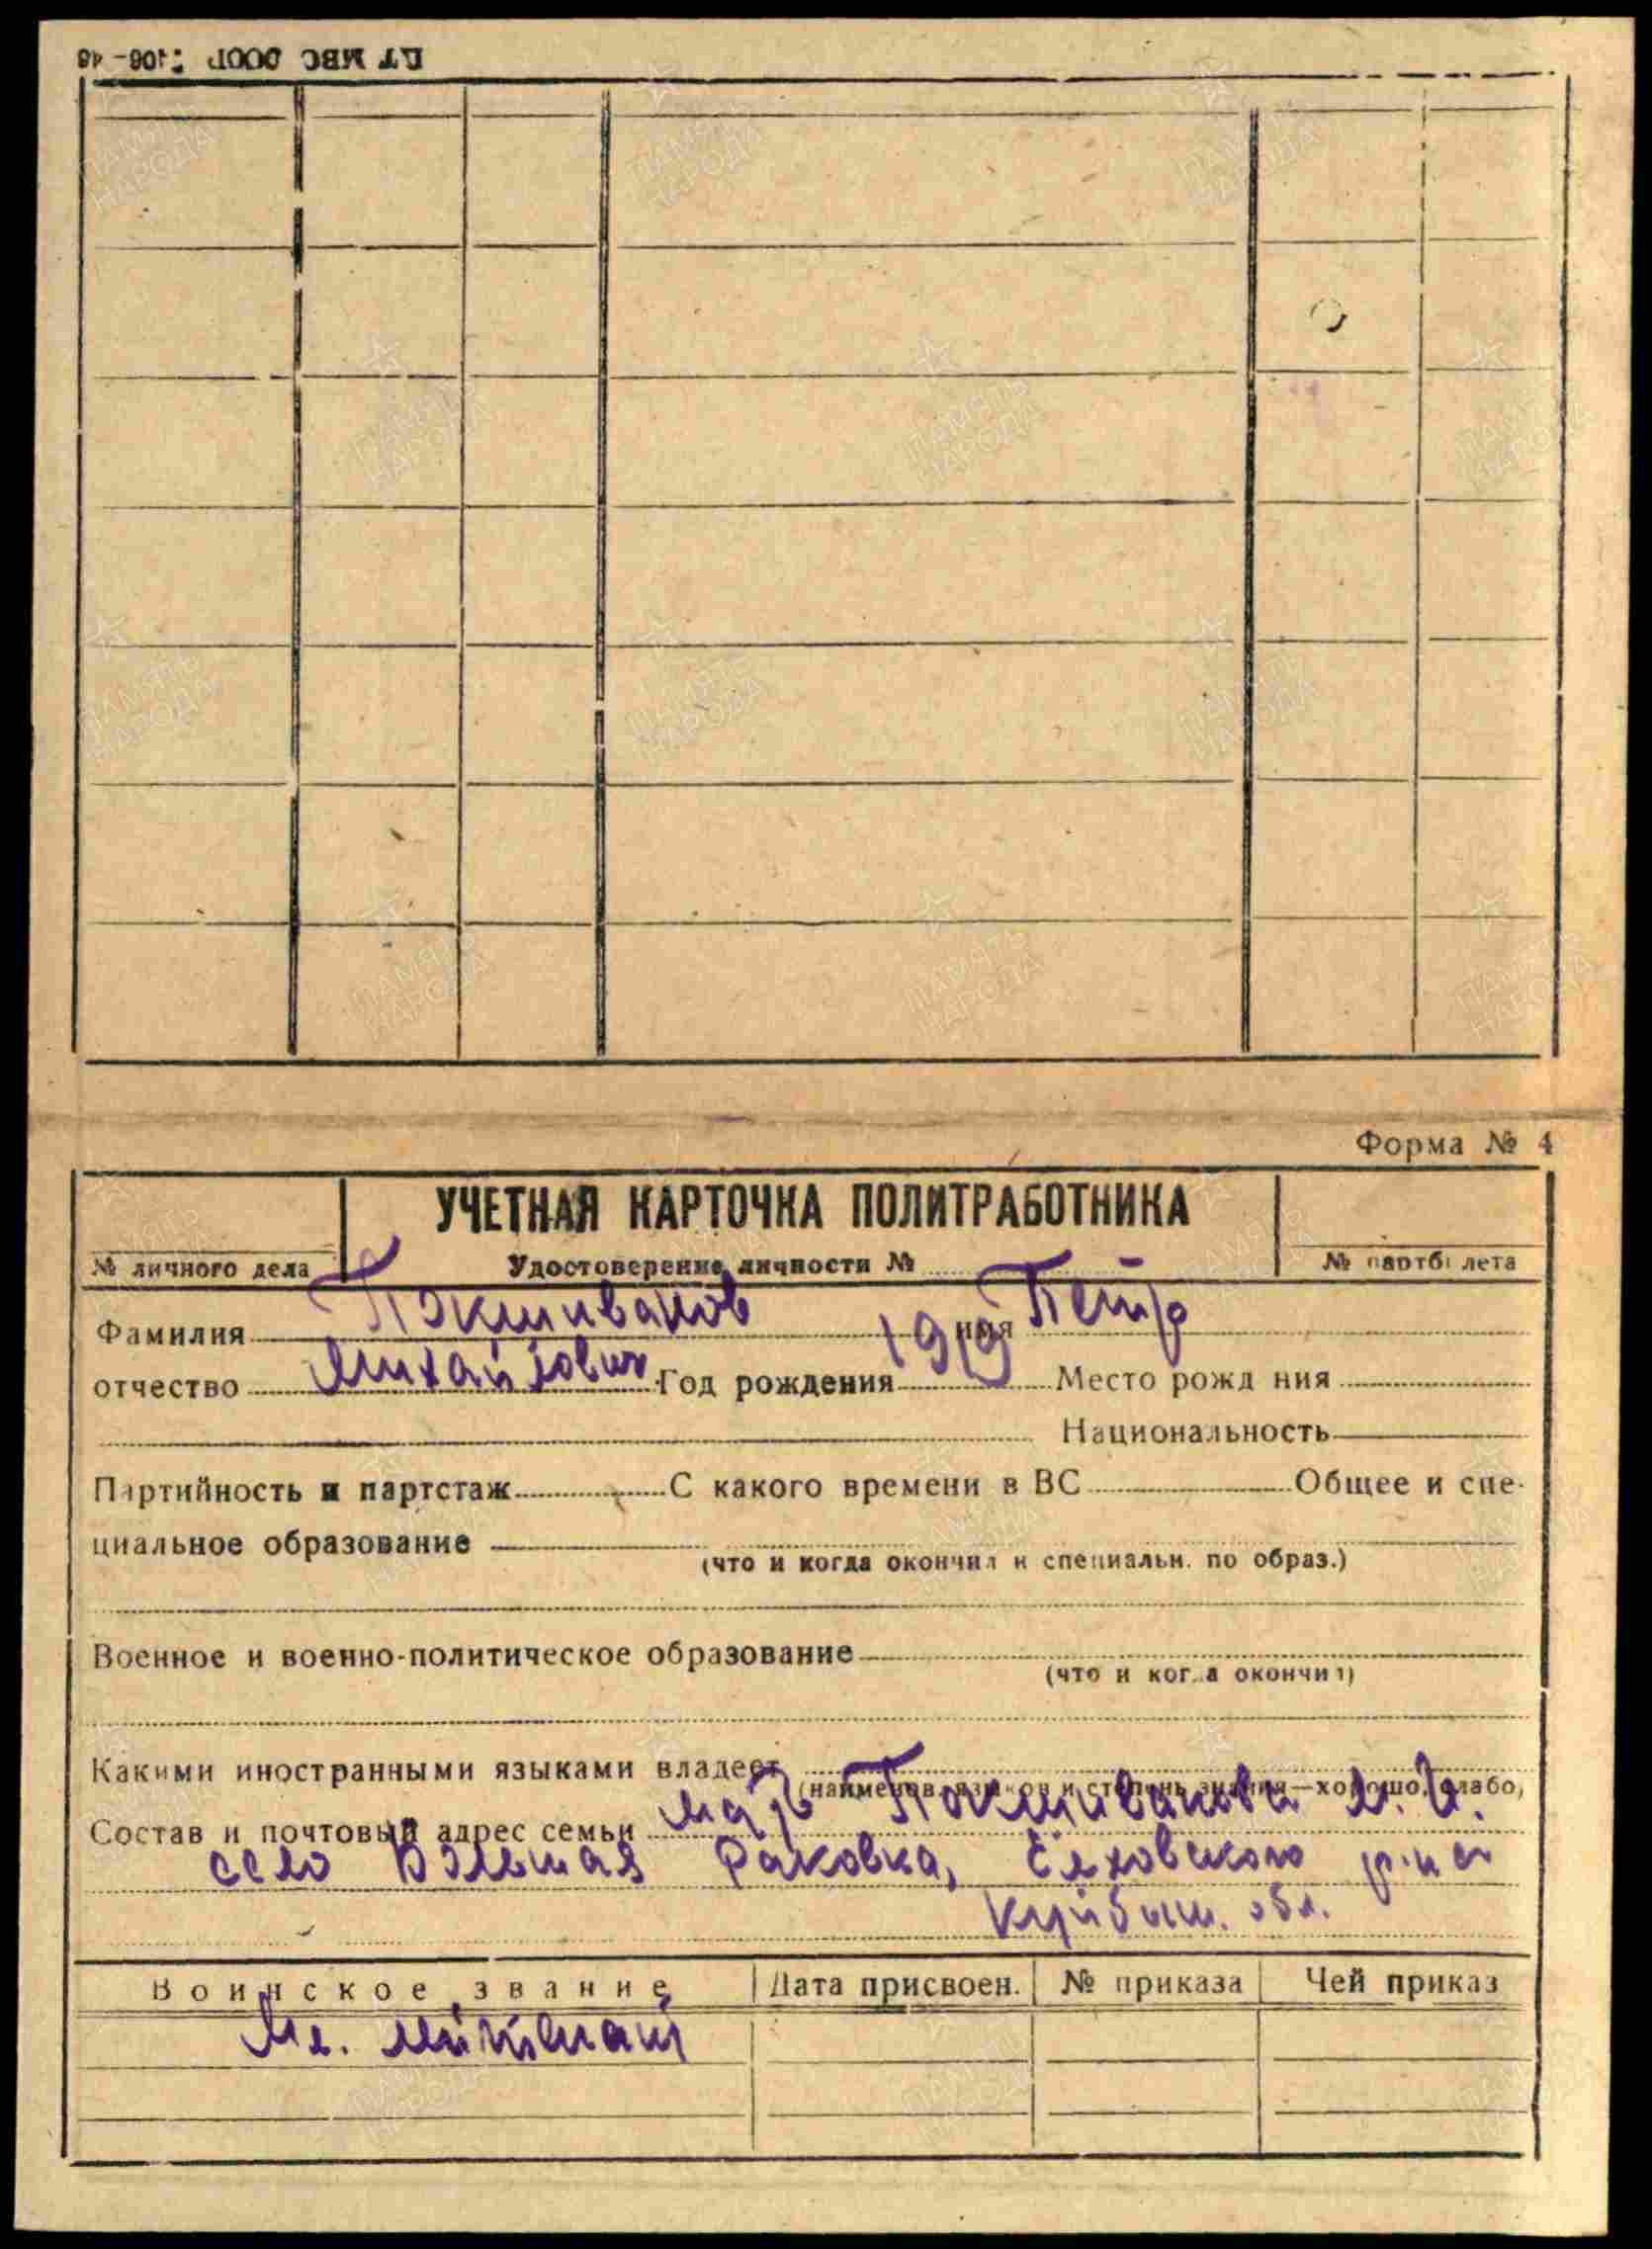 ВТ МВС СССР 2106-48
Форма № 4
УЧЕТНАЯ КАРТОЧКА ПОЛИТРАБОТНИКА
№ личного дела
Удостоверение личности №
№ партбилета
Фамилия Покшиванов имя Петр
отчество Михайлович Год рождения 1919 Место рожд ния
Национальность
Партийность и партстаж С какого времени в ВС Общее и спе-
циальное образование
(что и когда окончил и специальн. по образ.)
Военное и военно-политическое образование
(что и когда окончил)
Какими иностранными языками владеет
(наименов. языков и степень знания—хорошо, слабо,
Состав и почтовый адрес семьи мать Покшиванова
село Большая Раковка, Елховского р-на
Куйбыш. обл.
Воинское звание Дата присвоен. № приказа Чей приказ
Мл. лейтенант
ПАМЯТЬ НАРОДА